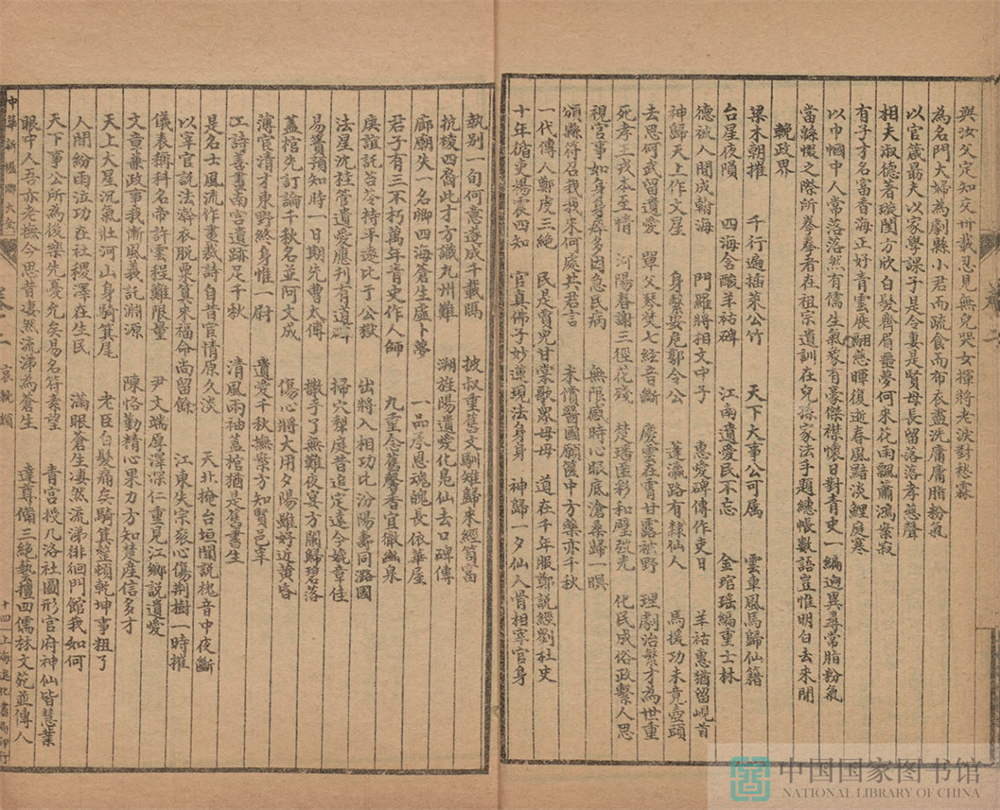 與汝父定知交卅載忍見無兒哭女揮將老淚對愁霖
為名門夫婦為劇縣小君而疏食而布衣盡洗庸庸脂粉氣
以官箴勗夫以家學課子是令妻是賢母長留落落孝慈聲
相夫淑德著璇閨方欣白髮齊眉噩夢何來花雨飄蕭鴻案寂
有子才名富香海正好青雲展翮慈暉復逝春風黯淡鯉庭寒
以巾幗中人常落落然有儒生氣裴有豪傑襟懷日對青史一編迥異尋常脂粉氣
當縣惙之際所拳拳者在祖宗遺訓在兒孫家法手題總帳數語豈惟明白去來間
輓政界
梁木朝摧 千行遍插萊公竹 天下大事公可属 雲車風馬歸仙籍
台星夜隕 四海含酸羊祜碑 江南遺愛民不忘 金琯瑤編重士林
德被人間成翰海 門羅將相文中子 惠愛碑傳作吏日 羊祜惠猶留峴首
神歸天上作文星 身繫安危郭令公 蓬瀛路有隸仙人 馬援功未竟壺頭
去思何武留遺愛 單父琴焚七絃音斷 慶雲在霄甘露被野 理劇治繁才為世重
死孝王戎本至情 河陽春謝三徑花殘 楚璠匿彩和璧發光 化民成俗政繫人思
視官事如身事身瘁多因急民病 無限感時心眼底滄桑歸一瞑
頒縣符召我我來何處共君言 未償醫國願篋中方藥亦千秋
一代傳人鄭虔三絶 民是寶兒甘棠歌眾母母 道在千年服鄭説經劉社史
十年循吏楊震四知 官真佛子妙蓮現法身身 神歸一夕仙人骨相宰官身
執别一旬何意遽成千載鵑 披叔重舊文馴雉歸來經笥富
抗稜四裔此才方識九州難 溯旌陽遺愛化鳧仙去口碑傳
廊廟失一名卿四海蒼生虛卜夢 一品承恩魂魄長依華屋
君子有三不朽萬年青史作人師 九重念舊馨香宜徹幽泉
庾誼託苔岑持平遠比于公獄 出將入相功比汾陽壽同潞國
法星沉柱管遺愛應刊有道碑 掃穴犂庭昔追定遠今媲章佳
易簀預知時一日期先曹太傅 撒手了無難夜宴方闌歸碧落
蓋棺先訂論千秋名並阿文成 傷心將大用夕陽雖好近黃昏
薄宦清才東野終身惟一尉 遺愛千秋撫案方知賢邑宰
工詩善畫南宮遺跡足千秋 清風兩袖蓋棺猶是舊書生
是名士風流作畫裁詩自昔宦情原久淡 天北掩台垣聞説槐音中夜斷
以宰官説法濟衣脱粟算來福命尚留餘 江東失宗衮心傷荆樹一時摧
儀表稱科名帝許雲程難限量 尹文端厚澤深仁重見江鄉説遺愛
文章兼政事我慚風義託淵源 陳恪勤精心果力方知楚産信多才
天上大星沉氣壯河山身騎箕尾 老臣白髮痛矣騎箕整頓乾坤事粗了
人間紛雨泣功在社稷澤在生民 滿眼蒼生凄然流涕徘徊門館我如何
天下事公所為後樂先憂允矣易名符素望 青宮授几洛社圖形官府神仙皆慧業
眼中人吾亦老撫今思昔凄然流涕為蒼生 達尊備三絶藝種四儒林文苑並傳人
中華新輓聯大全
卷二
哀輓類
十四
上海進化書局印行
中国国家图书馆
NATIONAL LIBRARY OF CHINA